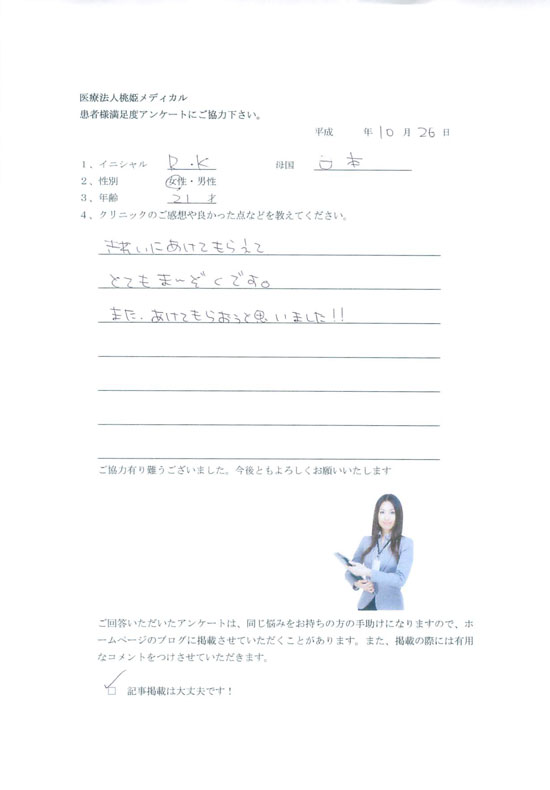 医療法人桃姫メディカル
患者様満足度アンケートにご協力下さい。
平成 年 10 月 26 日
1、イニシャル R.K 母国 日本
2、性別 女性・男性
3、年齢 21 才
4、クリニックのご感想や良かった点などを教えてください。
きれいにあけてもらえて
とてもまーぞくです。
また、あけてもらおうと思いました!!
ご協力有り難うございました。今後ともよろしくお願いいたします
ご回答いただいたアンケートは、同じ悩みをお持ちの方の手助けになりますので、ホ
ームページのブログに掲載させていただくことがあります。また、掲載の際には有用
なコメントをつけさせていただきます。
□ 記事掲載は大丈夫です!